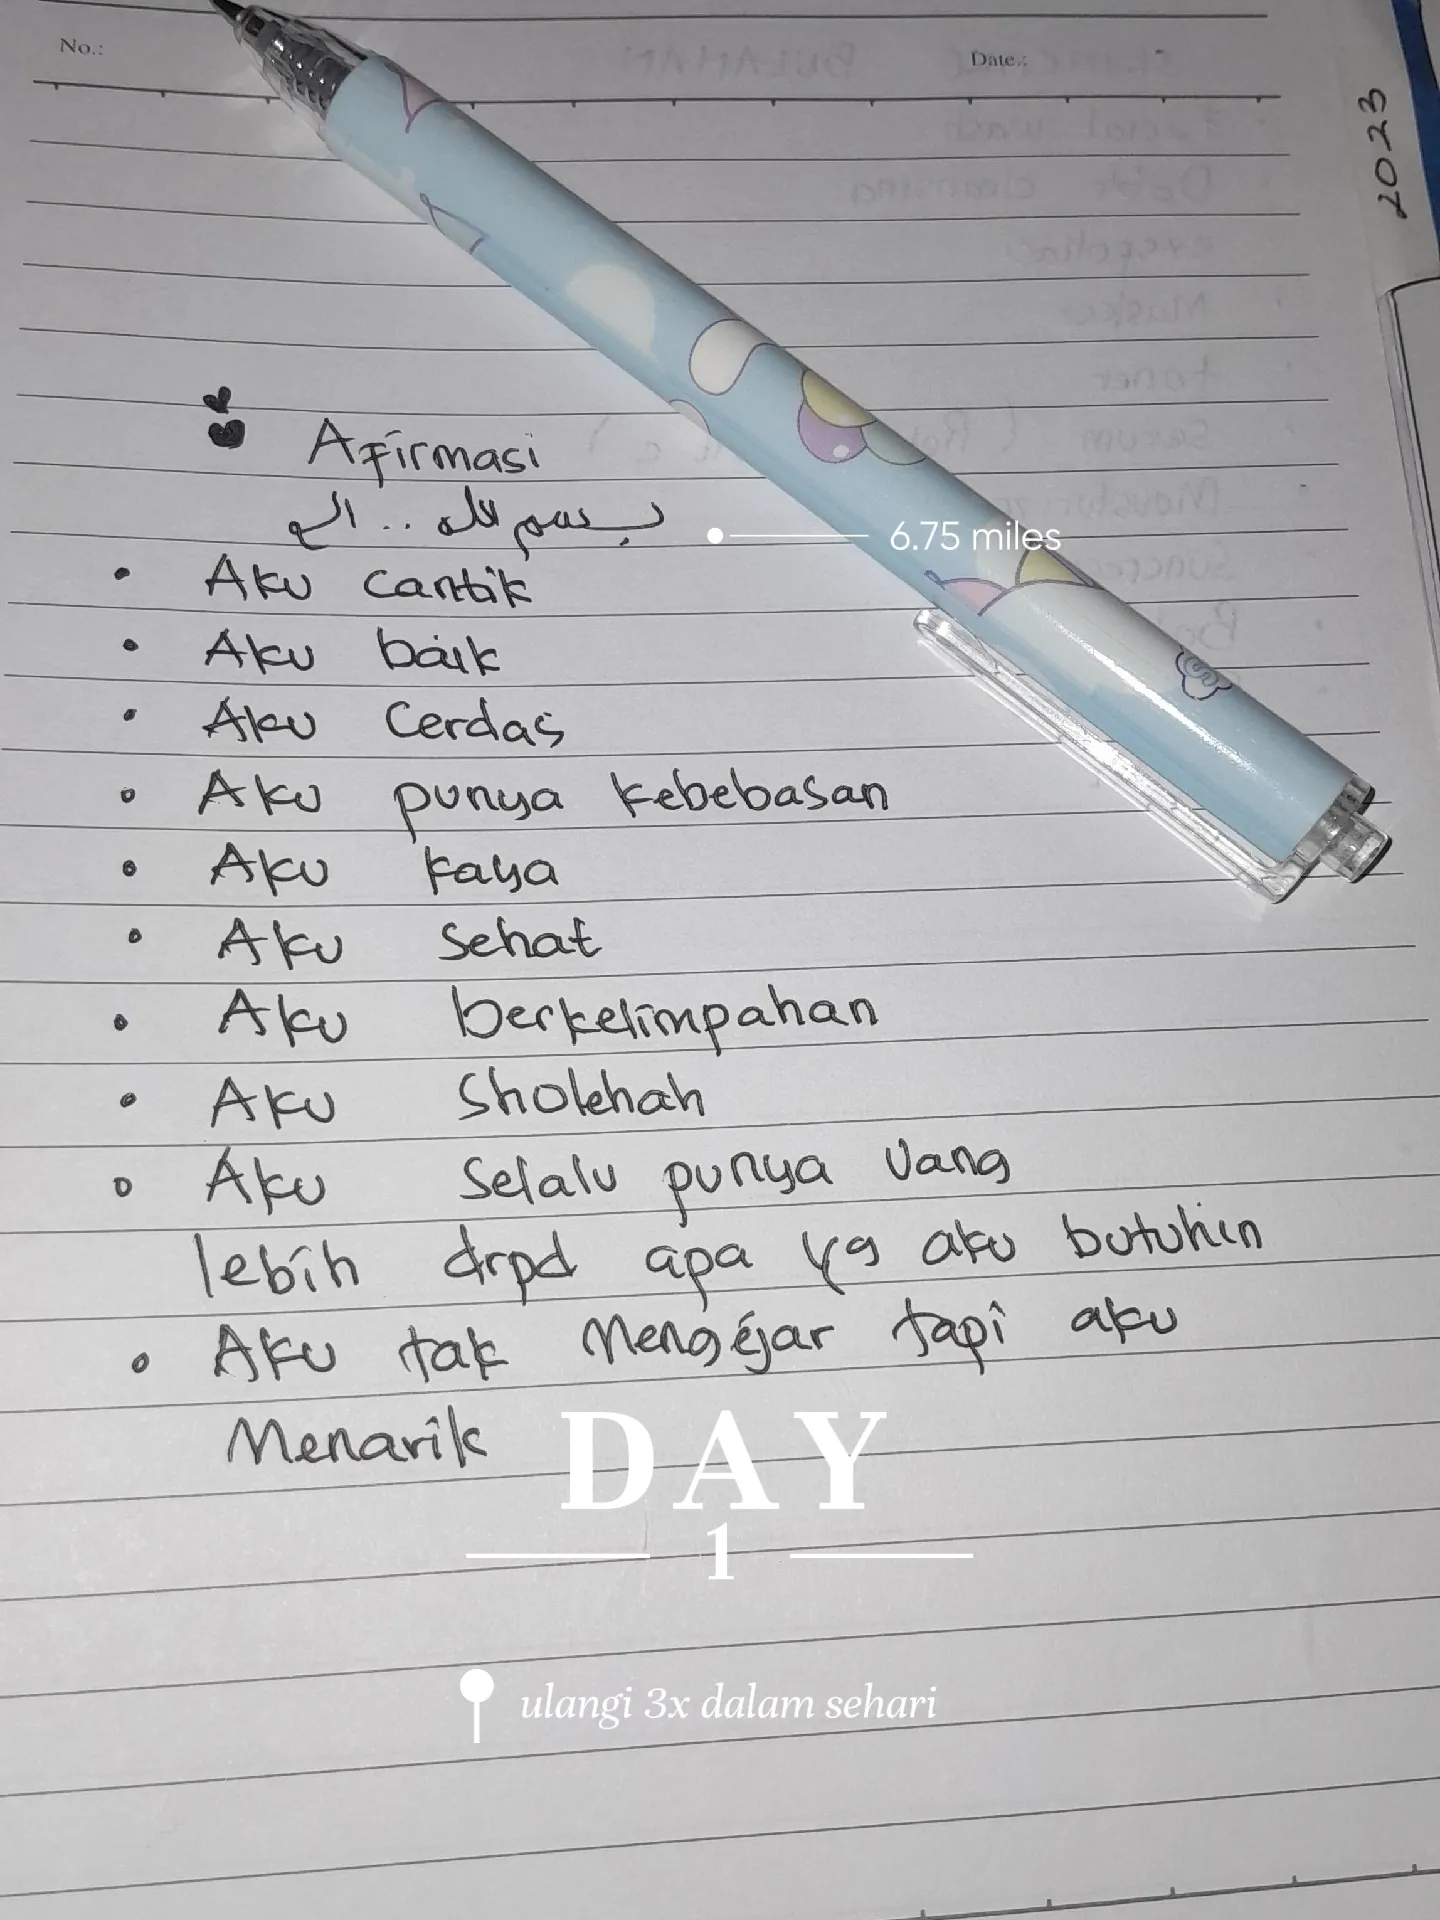 No.:
Date.:
2023
Afirmasi
بسم الله .. الخ
6.75 miles
• Aku cantik
• Aku baik
• Aku Cerdas
• Aku punya kebebasan
• Aku kaya
• Aku sehat
• Aku berkelimpahan
• Aku Sholehah
• Aku Selalu punya Uang
lebih drpd apa yg aku butuhin
• Aku tak Mengejar tapi aku
Menarik
DAY
1
ulangi 3x dalam sehari